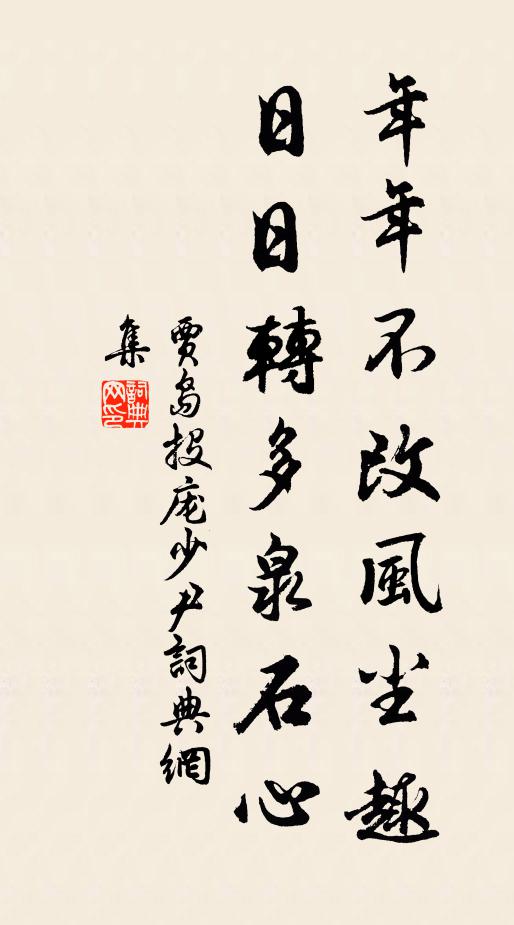 年年不改風尘趣
日日轉多泉石心
賈島投庞少尹詞典網
集
詞典网印